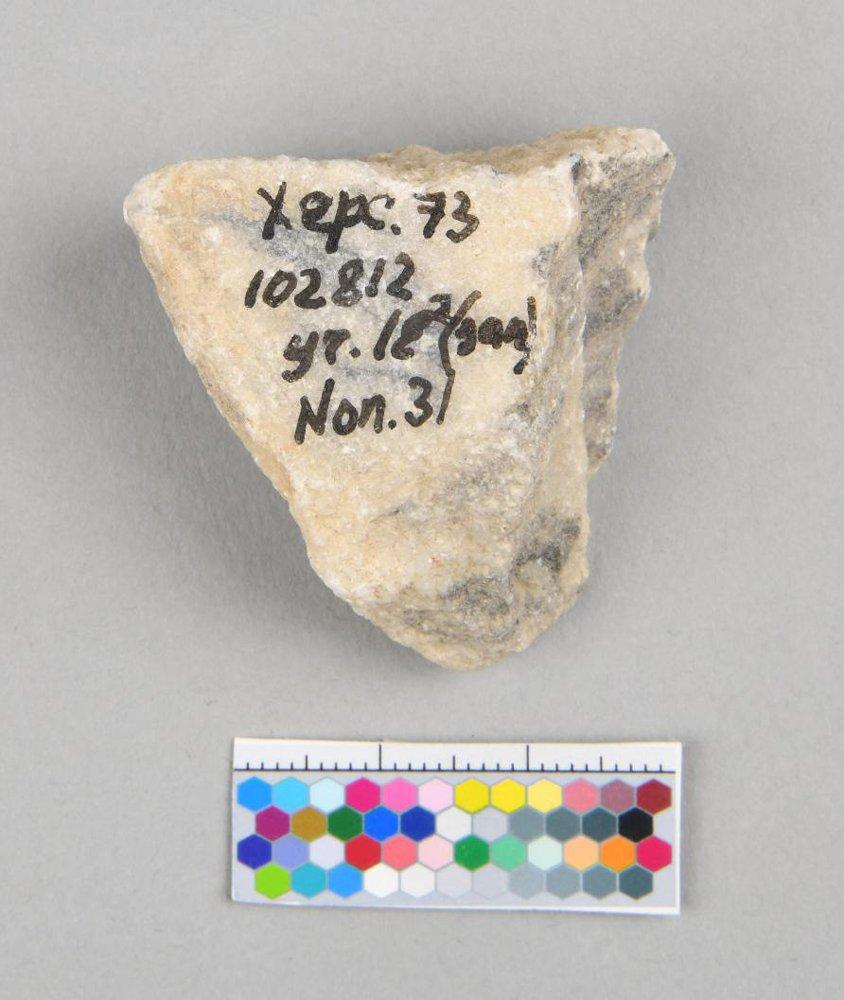 Херс. 73
102812
уг. 18² (зап)
Nоп. 31